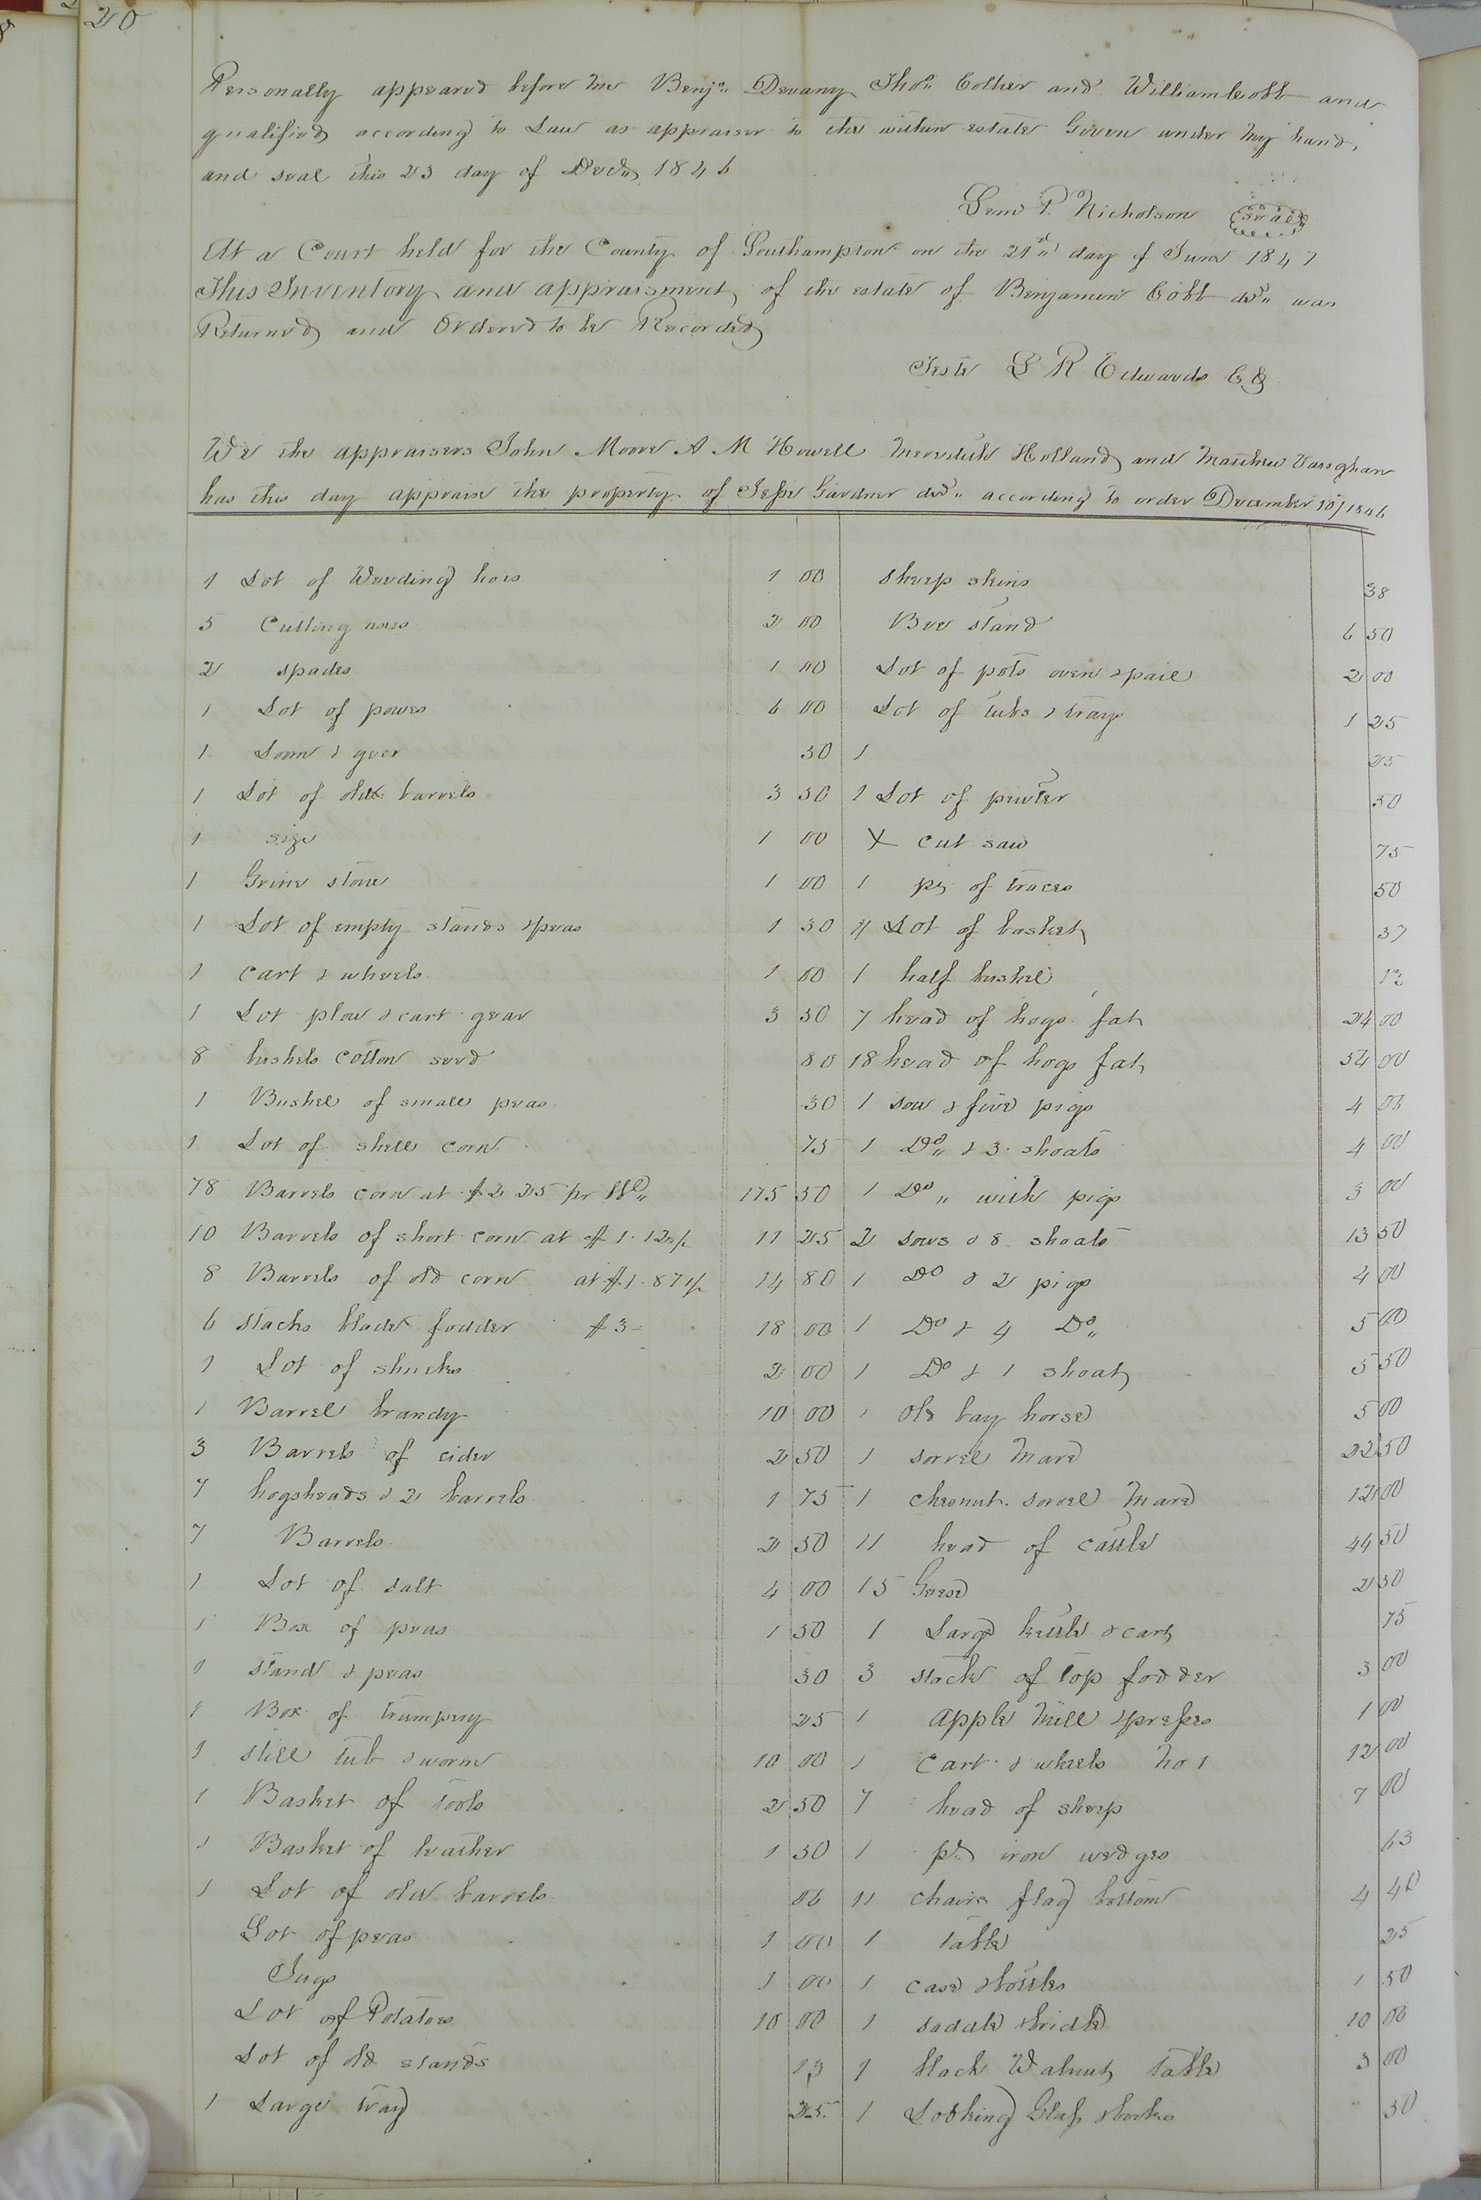 20
Personally appeared before me Benja. Devany Thos. Collier and William Cobb and
qualified according to Law as appraiser to the within estate Given under my hand
and seal this 23 day of Decr. 1846
Lem P. Nicholson Seal
At a Court held for the County of Southampton on the 21st day of June 1847
This Inventory and appraisment of the estate of Benjamin Cobb decd. was
Returned and Ordered to be Recorded
Teste L R Edwards C C
We the appraisers John Moore A M Howell Meredith Holland and Matthew Vaughan
has this day appraise the property of Jesse Gardner decd. according to order December 10 / 1846
1 Lot of Weeding hoes 1 00
5 Cutting axes 2 00
2 spades 1 00
1 Lot of powes 6 00
1 Loom & geer 50
1 Lot of old barrels 3 50
1 size 1 00
1 Grine stone 1 00
1 Lot of empty stands & peas 1 30
1 cart & wheels 1 00
1 Lot plow & cart gear 3 50
8 bushels cotton seed 80
1 Bushel of small peas 30
1 Lot of shell corn 75
78 Barrels corn at $2 25 pr Bbl. 175 50
10 Barrels of short corn at $1.12 1/2 11 25
8 Barrels of old corn at $1.87 1/2 14 80
6 stacks blade fodder $3 18 00
1 Lot of shucks 2 00
1 Barrel brandy 10 00
3 Barrels of cider 2 50
7 hogsheads & 2 barrels 1 75
7 Barrels 2 50
1 Lot of salt 4 00
1 Box of peas 1 50
1 stand & peas 30
1 Box of trumpery 25
1 still tub & worm 10 00
1 Basket of tools 2 50
1 Basket of leather 1 50
1 Lot of old barrels 06
Lot of peas 1 00
Jugs 1 00
Lot of Potatoes 10 00
Lot of old stands 13
1 Large tray 25
sheep skins 38
Bee stand 6 50
Lot of pots oven & pail 2 00
Lot of tubs & trays 1 25
1 25
1 Lot of pewter 50
X cut saw 75
1 pr of traces 50
Lot of basket 37
1 half bushel 13
7 head of hogs fat 24 00
18 head of hogs fat 54 00
1 sow & five pigs 4 00
1 Do. & 3 shoats 4 00
1 Do. with pigs 3 00
2 sows & 8 shoats 13 50
1 Do & 2 pigs 4 00
1 Do & 4 Do. 5 00
1 Do & 1 shoat 5 50
1 old bay horse 5 00
1 sorrel mare 22 50
1 chesnut sorrel mare 12 00
11 head of cattle 44 50
15 Geese 2 50
1 Large kettle & cart 75
3 stack of top fodder 3 00
1 apple mill & presses 1 00
1 cart & wheels no 1 12 00
7 head of sheep 7 00
1 pr. iron wedges 63
11 chairs flag bottom 4 40
1 Table 25
1 case & bottles 1 50
1 saddle & bridle 10 00
1 black Walnut Table 3 00
1 Looking Glass & books 50